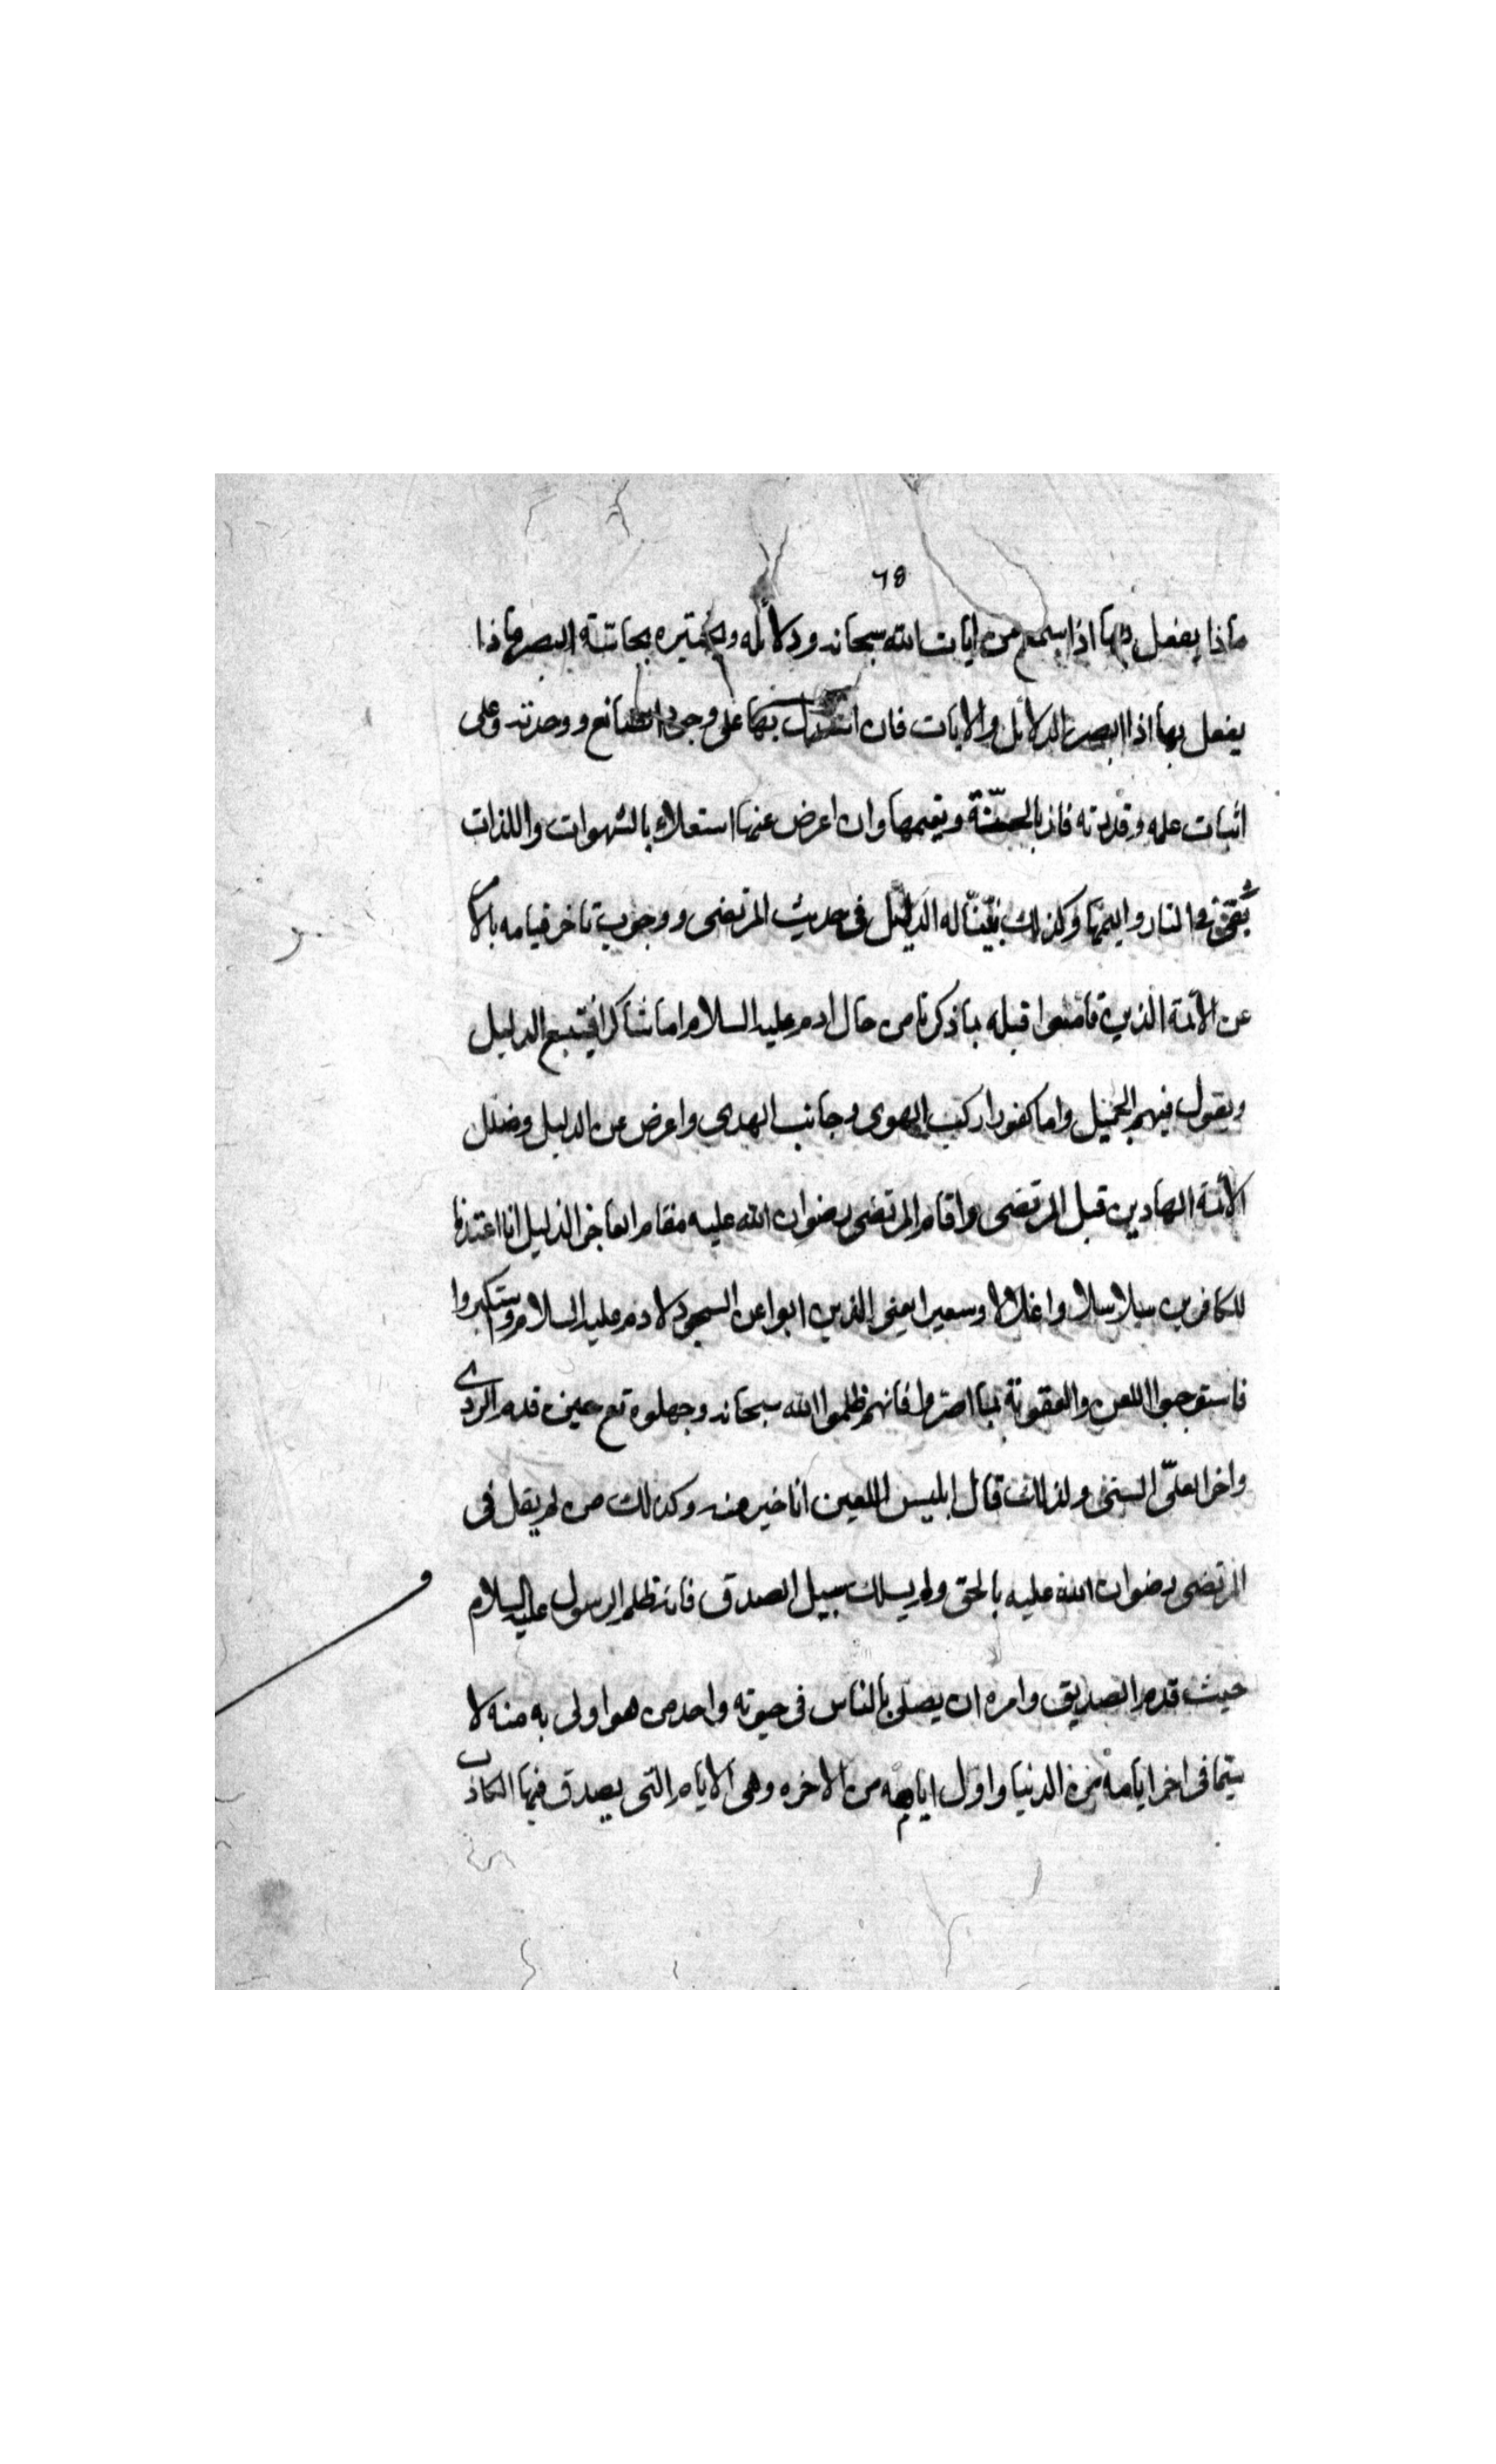 ٦٥
ماذا يفعل بها اذا سمع من ايات الله سبحانه ودلائله ويختبره بحاسة البصر ماذا
يفعل بها اذا ابصر الدلائل والايات فان استدل بها على وجود الصانع ووحدته وعلى
اثبات علمه وقدرته فاز بالجنة ونعيمها وان اعرض عنها استعلاء بالشهوات واللذات
النار واليمها وكذلك بيّنا له الدليل فى حديث المرتضى ووجوب تاخر قيامه بالا
عن الائمة الذين قاموا قبله بما ذكرنا من حال ادم عليه السلام اما شاكرا فيتبع الدليل
ويقول فيهم الجميل واما كفورا ركب الهوى وجانب الهدى واعرض عن الدليل وضلل
الائمة الهادين قبل المرتضى واقام المرتضى رضوان الله عليه مقام العاجز الذليل انا اعتدنا
للكافرين سلاسلا واغلالا وسعيرا يعنى الذين ابوا عن السجود لادم عليه السلام واستكبروا
فاستوجبوا اللعن والعقوبة بما اصروا فانهم ظلموا الله سبحانه وجهلوه حين قدم الردى
واخر العلىّ السنى ولذلك قال ابليس اللعين انا خير منه وكذلك من لم يقل فى
المرتضى رضوان الله عليه بالحق ولم يسلك سبيل الصدق فانه ظلم الرسول عليه السلام
حيث قدم الصديق وامره ان يصلى بالناس فى حيوته واحد من هو اولى به منه لا
سيما فى اخر ايامه من الدنيا واول ايامه من الاخره وهى الايام التى يصدق فيها الكاذب